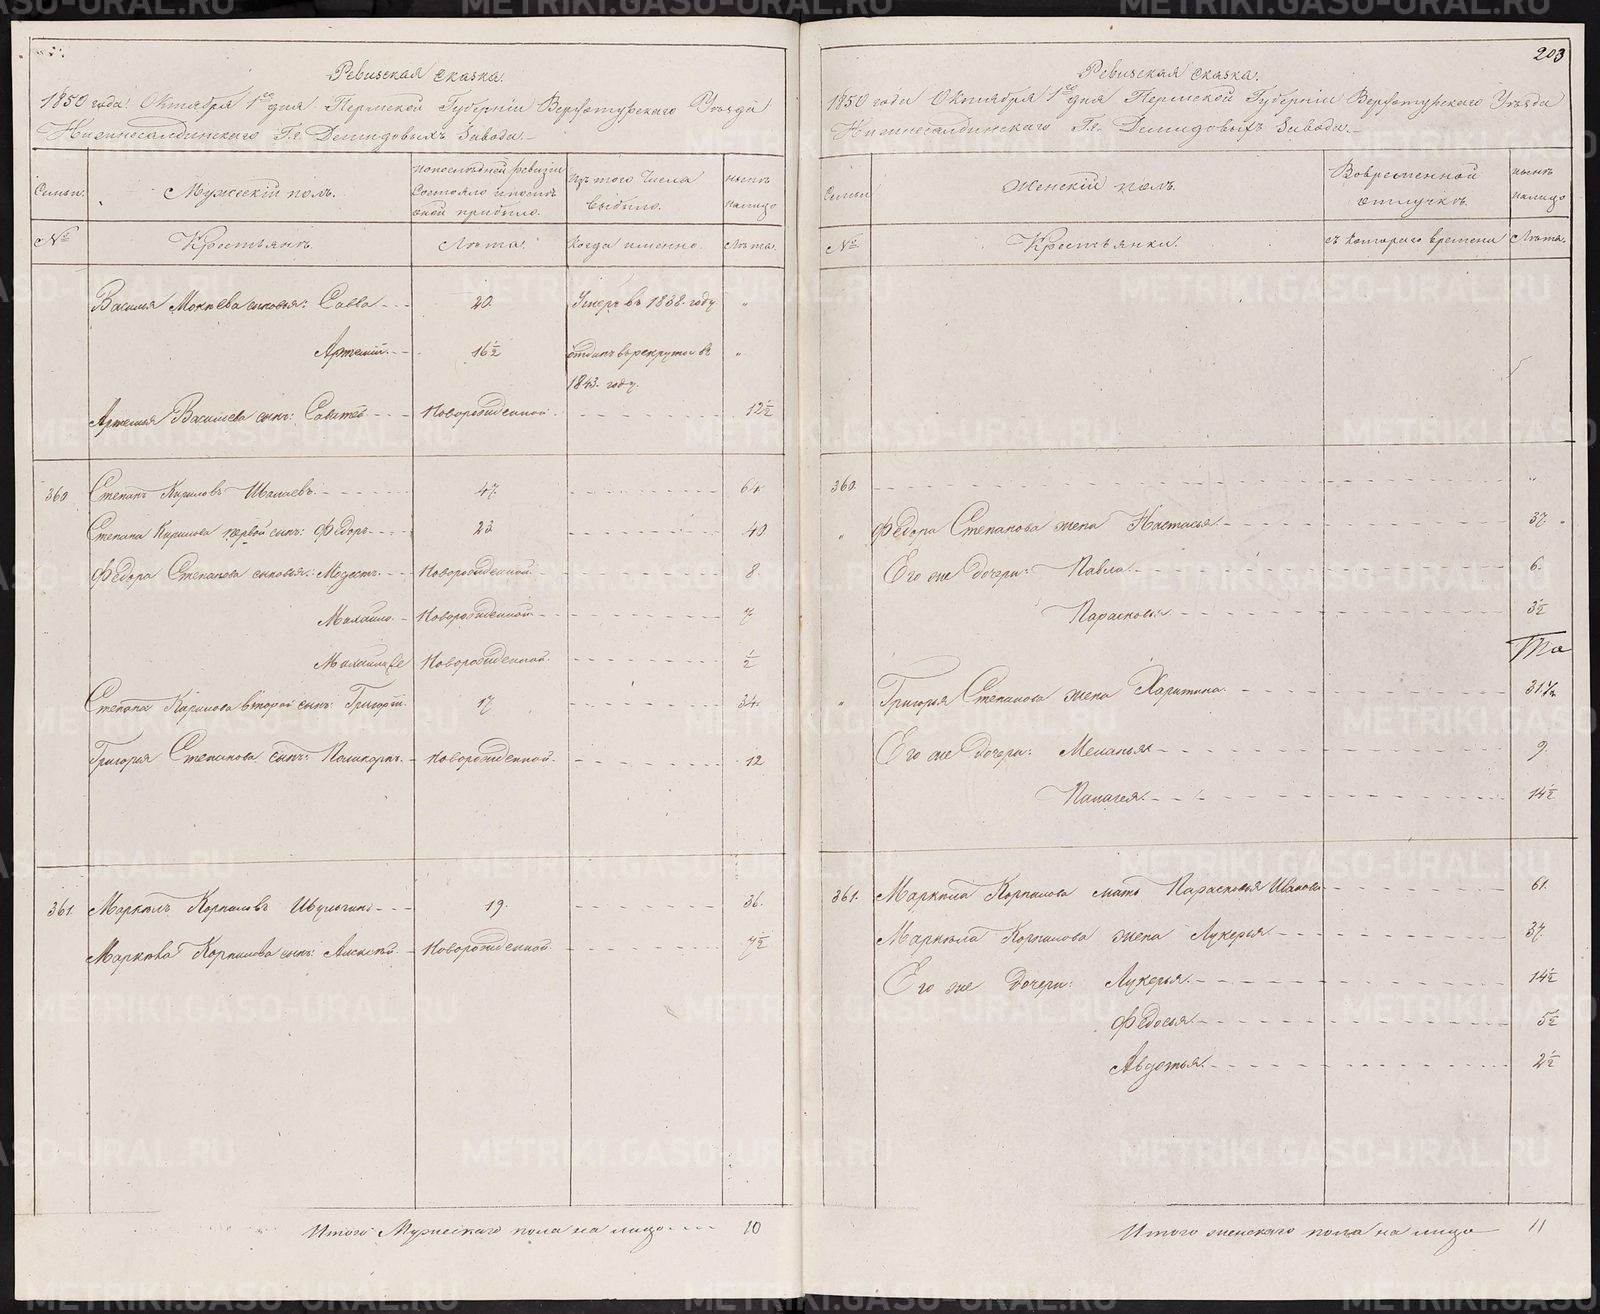 Ревизская сказка.
1850 года Октября 1го дня Пермской Губернiи Верхотурскаго Уѣзда
Нижнесалдинскаго Г.г. Демидовыхъ Завода.
Семьи.
Мужескiй полъ.
попослѣдней ревизiи состояло ипослѣ оной прибыло.
изъ того числа выбыло.
нынѣ налицо
№
Крестьянъ.
Лѣта.
Когда именно.
Лѣта.
Василья Мокѣева сыновья: Савва 20. Умеръ въ 1838 году "
Артемiй 16½ отданъ въ рекруты въ 1843. году. "
Артемья Васильева сынъ: Савитей Новорожденной. 12½
360 Степанъ Кириловъ 47. 64
Степана Кирилова первой сынъ: Федоръ 23 40
Федора Степанова сыновья: Модестъ Новорожденной 8.
Михайло Новорожденной 7
Новорожденной. ½
Степана Кирилова второй сынъ: Григорiй. 17 34.
Григорья Степанова сынъ: Поликарпъ. Новорожденной. 12
361. Маркелъ Корниловъ 19. 36.
Маркела Корнилова сынъ: Алексѣй. Новорожденной. 7½
Итого Мужескаго пола на лицо 10
203
Ревизская сказка.
1850 года Октября 1го дня Пермской Губернiи Верхотурскаго Уѣзда
Нижнесалдинскаго Г.г. Демидовыхъ Завода.
Семьи
Женскiй полъ.
Вовременной отлучкѣ.
нынѣ налицо
№
Крестьянки.
съ котораго времени
Лѣта.
360. "
" Федора Степанова жена Настасья 37.
Его же дочери: Павла 6.
Парасковья 3½
" Григорья Степанова жена Харитина 31½
Его же дочери: Меланья 9
Палагея. 14½
361. Маркела Корнилова мать Парасковья Иванова 61.
Маркела Корнилова жена Лукерья 37.
Его же дочери: Лукерья. 14½
Федосья 5½
Авдотья. 2½
Итого женскаго пола на лицо 11
METRIKI.GASO-URAL.RU